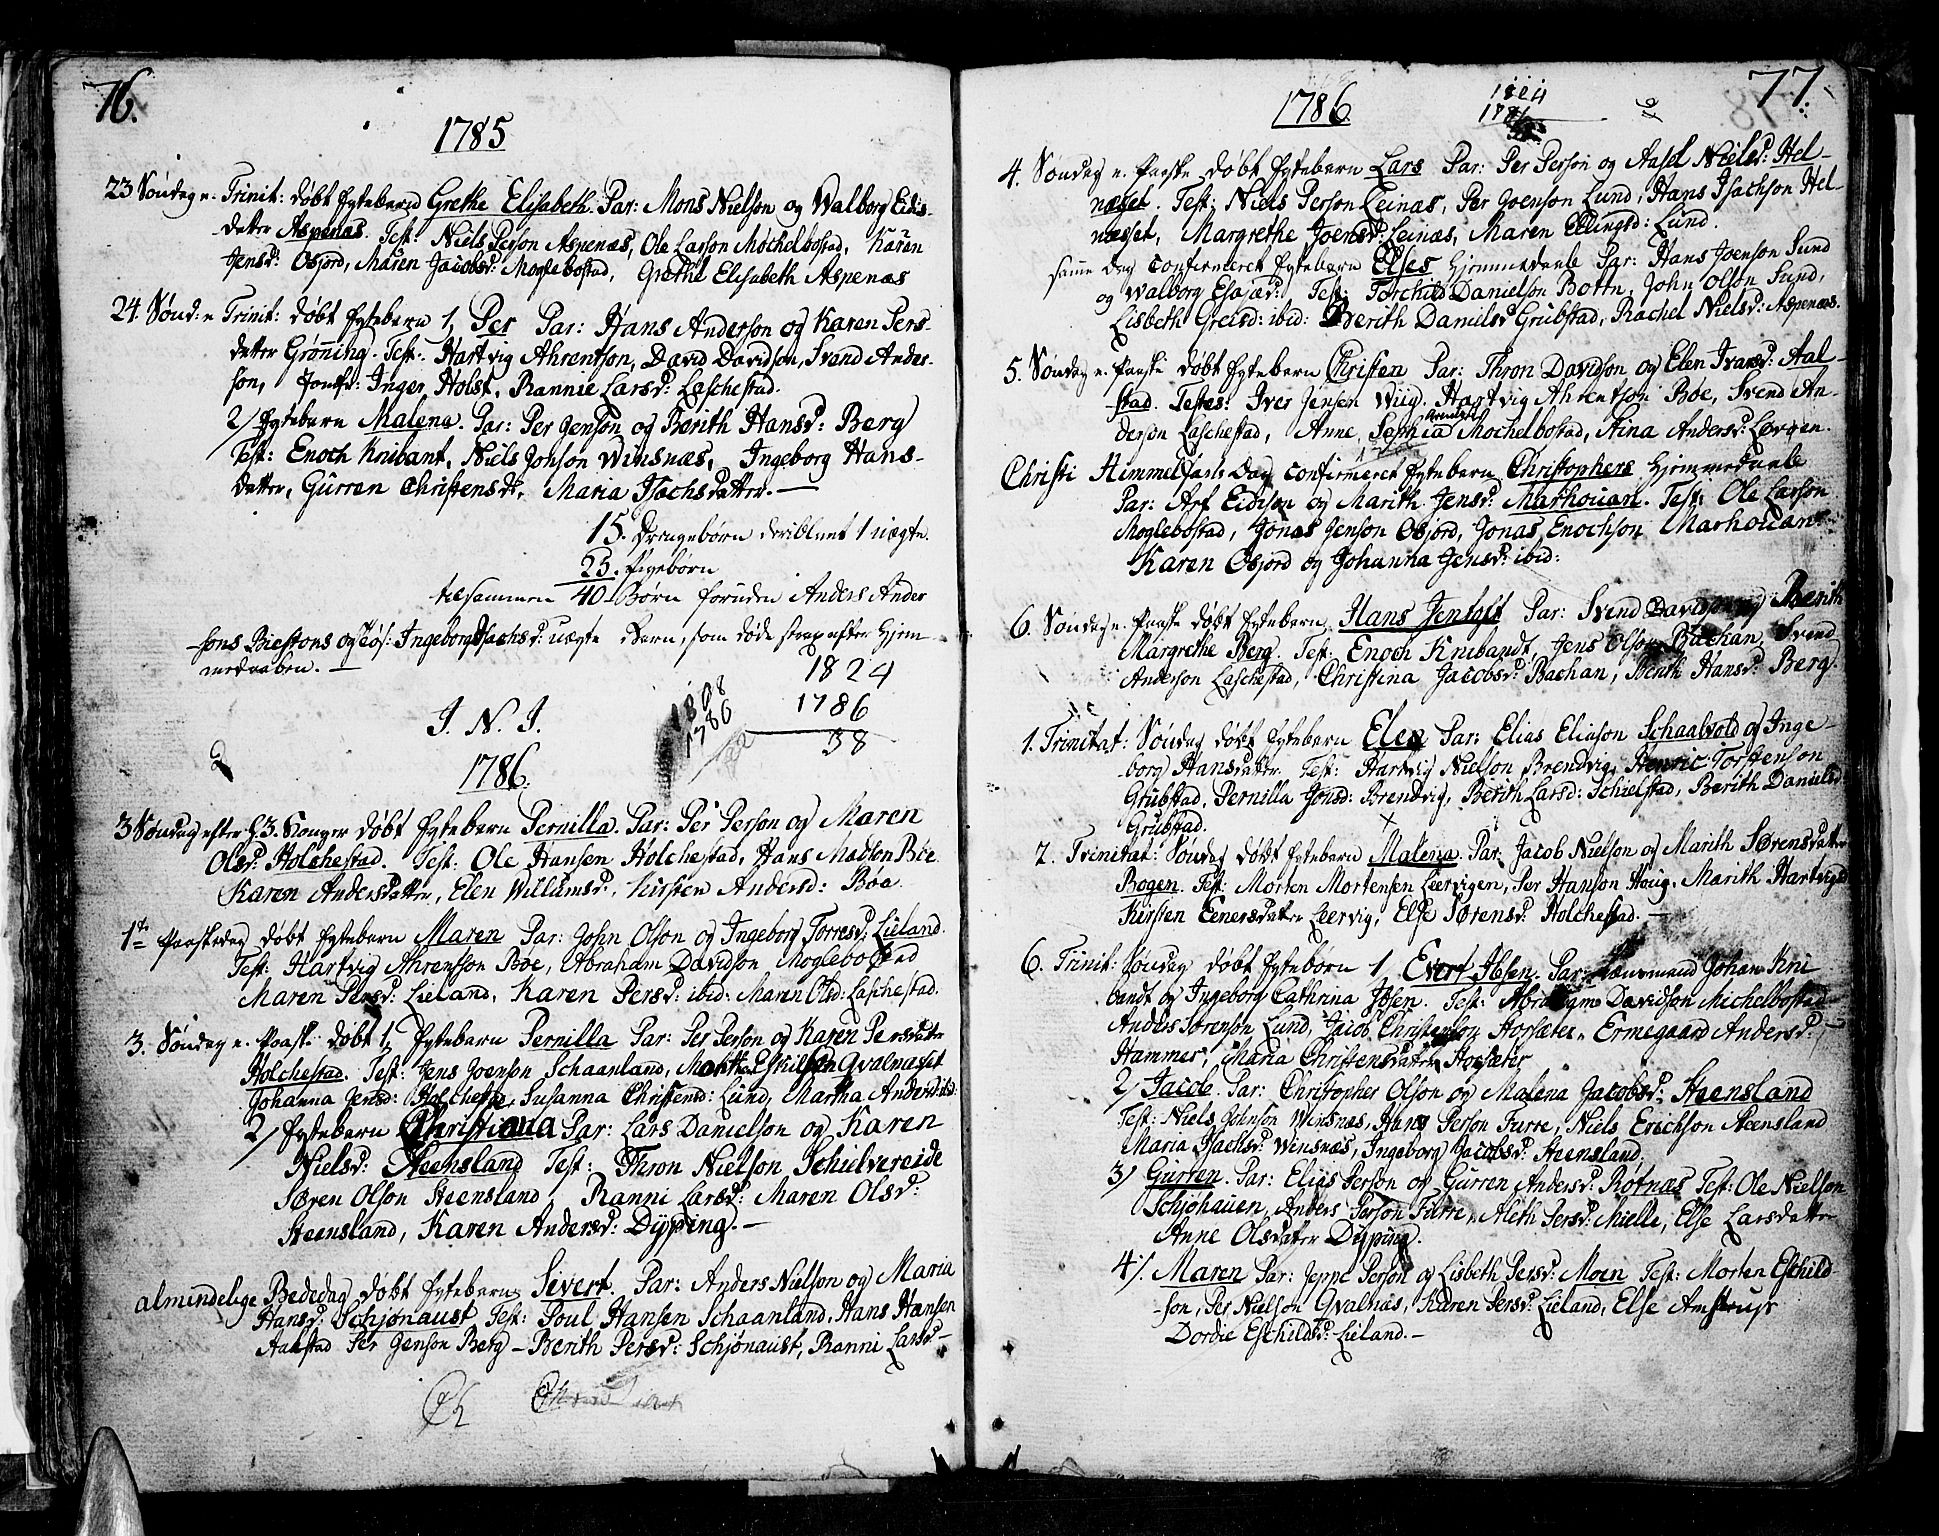 76.
1785
23 Søndag e. Trinit: døbt Ægtebarn Grethe Elisabeth. Par: Mons Nielson og Walborg Eidis-
datter Aspenæs. Test: Niels Person Aspenæs, Ole Larson Mochelbostad, Karen
Jensd: Osjord, Maren Jacobsd: Moglebostad, Grethe Elisabeth Aspenæs
24. Sønd: e Trinit: døbt Ægtebarn 1, Per Par: Hans Anderson og Karen Pers-
datter Grønning. Test: Hartvig Ahrentson, David Davidson, Svend Ander-
son, Inger Holst, Rannie Larsd: Laschestad.
2/ Ægtebarn Malena. Par: Per Jenson og Berith Hansd: Berg
Test: Enoch Knibant, Niels Jonson Winsnæs, Ingeborg Hans-
datter, Gurren Christensd:, Maria Isachsdatter. —
15. Drengebørn deriblant 1 uægte.
25. Pigebørn
tilsammen 40 Børn foruden Anders Ander
sons Biestons og Løs: Ingeborg Isachsd: uægte Barn, som døde strax efter Hjem-
medaaben. —
1824
1786
38
1808
1786
J. N. J.
1786.
3 Søndag efter h. 3. Konger døbt Ægtebarn Pernilla. Par: Per Person og Maren
Olsd: Holchestad. Test: Ole Hansen Holchestad, Hans Madson Bøe
Karen Andersdatter, Elen Willumsd:, Kirsten Andersd: Bøe.
1ste Paaskedag døbt Ægtebarn Maren Par: John Olson og Ingeborg Torresd: Lieland.
Test: Hartvig Ahrensson Bøe, Abraham Davidson Moglebostad
Maren Persd: Lieland, Karen Persd: ibid: Maren Olsd: Laschestad.
3. Søndag e. Paaske døbt 1, Ægtebarn Pernilla Par: Per Person og Karen Persdatter
Holchestad. Test: Jens Joenson Schaanland, Eskilson Qvalnæset
Johanna Jensd: Holchestad, Susanna Christensd: Lund, Martha Andersd: ibid:
2/ Ægtebarn Christiana Par: Lars Danielson og Karen
Nielsd: Steensland Test: Thron Nielson Schielvereide
Søren Olson Steensland, Ranni Larsd: Maren Olsd:
Steensland, Karen Andersd: Dypping. —
almindelige Bededag døbt Ægtebarn Sivert. Par: Anders Nielson og Maria
Hansd: Schjønaust Test: Poul Hansen Schaanland, Hans Hansen
Aalstad Per Jenson Berg – Berith Persd: Schjønaust, Ranni Larsd –
Ch
77.
1786.
1824
1786
4. Søndag e. Paaske døbt Ægtebarn Lars Par: Per Person og Aasel Nielsd: Hel-
næset. Test: Niels Person Leinæs, Per Joenson Lund, Hans Isachson Hel-
næsset, Margrethe Joensd: Leinæs, Maren Ellingsd: Lund.
samme Dag confirmeret Ægtebarn Elses Hjemmedaab Par: Hans Joenson Sund
og Walborg Esajæd: Test: Torchild Danielson Bottn, John Olson Sund,
Lisbeth Greisd: ibid: Berith Danielsd Grubstad, Rachel Nielsd: Aspenæs.
5. Søndag e. Paaske døbt Ægtebarn Christen Par: Thron Davidson og Elen Ivarsd: Aal-
stad. Testes: Iver Jensen Wiig. Hartvig Ahrentson Bøe, Svend An-
derson Laschestad, Anne Sophia Mochelbostad, Stina Andersd: Løvøen.
Christi Himmelfarts Dag confirmeret Ægtebarn Christophers Hjemmedaab
Par: Arf Eidison og Marith Jensd: Marhouan. Test: Ole Larson
Moglebostad, Jonas Jenson Osjord, Jonas Enochson Marhouan
Karen Osjord og Johanna Jensd: ibid:
6. Søndag e. Paaske døbt Ægtebarn Hans Jentoft Par: Svend Davidson og Berith
Margrethe Berg. Test: Enoch Knibandt, Jens Olson Bachan, Svend
Anderson Laschestad, Christina Jacobsd: Bachan, Berith Hansd: Berg.
1. Trinitat: Søndag døbt Ægtebarn Elen Par: Elias Eliason Schaalvold og Inge-
borg Hansdatter. Test: Hartvig Nielson Brendvig, Henric Torstenson
Grubstad, Pernilla Jonsd: Brendvig, Berith Larsd: Schielstad, Berith Danielsd
Grubstad.
2. Trinitat: Søndag døbt Ægtebarn Malena. Par. Jacob Nielson og Marith Sørensdatter
Bogen. Test: Morten Mortensen Leervigen, Per Hanson Houg, Marith Hartvigsd
Kirsten Eenersdatter Leervig, Else Sørensd: Holchestad. —
6. Trinit: Søndag døbt Ægtebørn 1, Evert Ibsen. Par: Lænsmand Johan Kni
bandt og Ingeborg Cathrina Ibsen. Test: Abraham Davidson Michelbostad
Anders Sørenson Lund, Jacob Christenson Horsæter, Ermegaard Andersd:
Hammer, Maria Christensdatter Horsæter
2/ Jacob. Par: Christopher Olson og Malena Jacobsd: Steensland
Test: Niels Johnson Winsnæs, Hans Person Furre, Niels Erichson Steensland
Maria Isachsd: Winsnæs, Ingeborg Jacobsd: Steensland.
3/ Gurren. Par: Elias Person og Gurren Andersd: Røtnæs Test: Ole Nielson
Schjøhauen, Anders Person Furre, Aleth Persd: Mielle, Else Larsdatter
Anne Olsdatter Dypping.
4/. Maren Par: Jeppe Person og Lisbeth Persd: Moen Test: Morten Eschild-
son, Per Nielson Qvalnæs, Karen Persd: Lieland, Else Amstrup
Dordie Eschildsd: Lieland. —